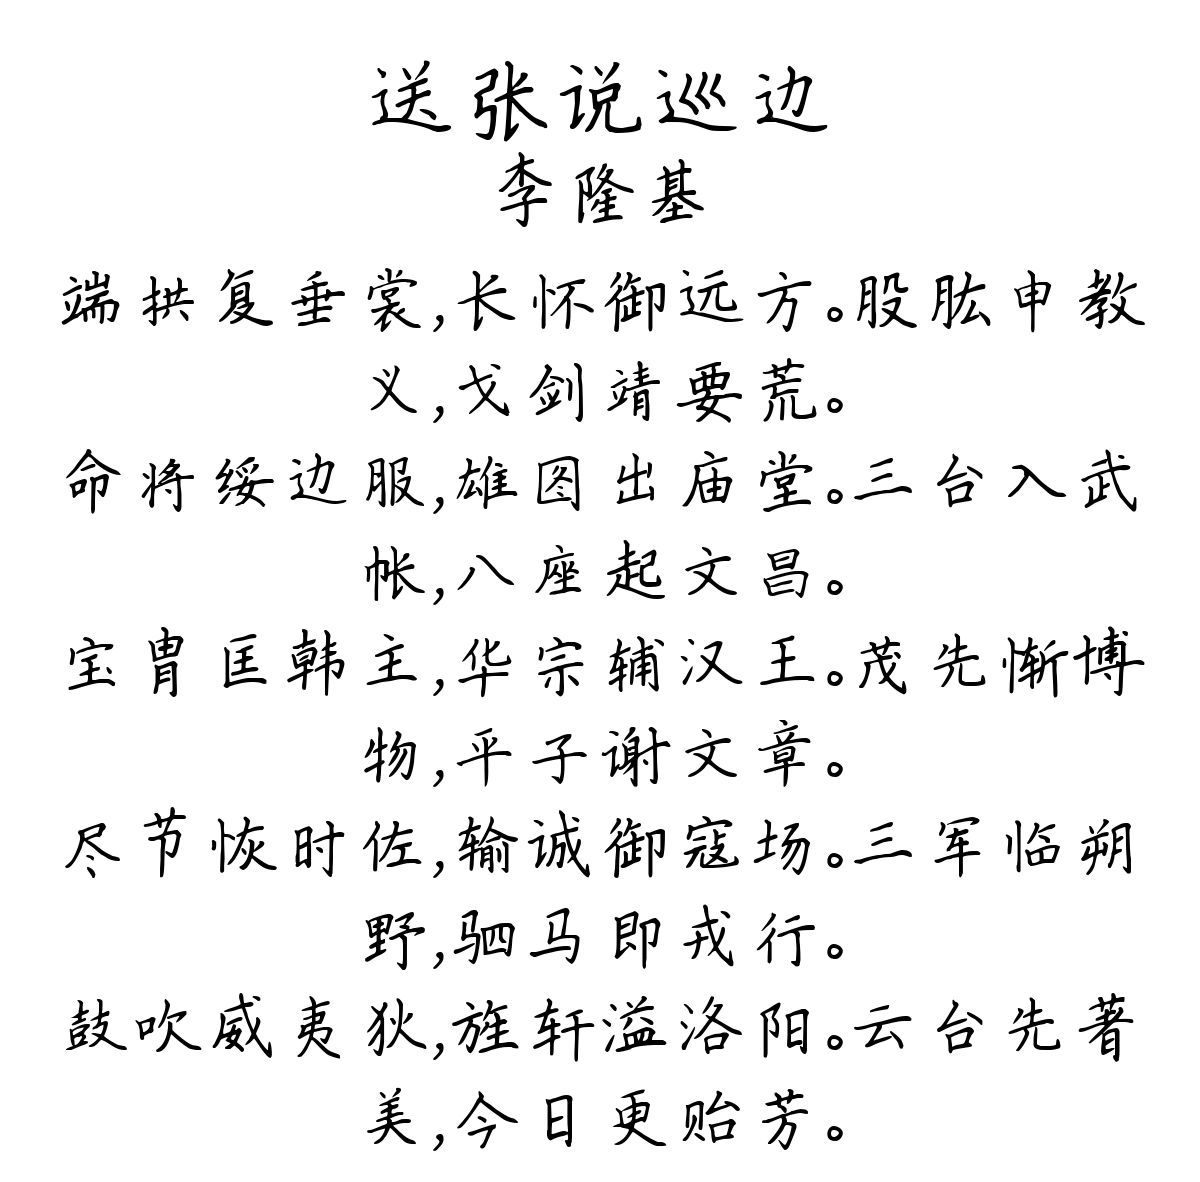 送张说巡边
李隆基
端拱复垂裳,长怀御远方。股肱申教
义,戈剑靖要荒。
命将绥边服,雄图出庙堂。三台入武
帐,八座起文昌。
宝胄匡韩主,华宗辅汉王。茂先惭博
物,平子谢文章。
尽节恢时佐,输诚御寇场。三军临朔
野,驷马即戎行。
鼓吹威夷狄,旌轩溢洛阳。云台先著
美,今日更贻芳。